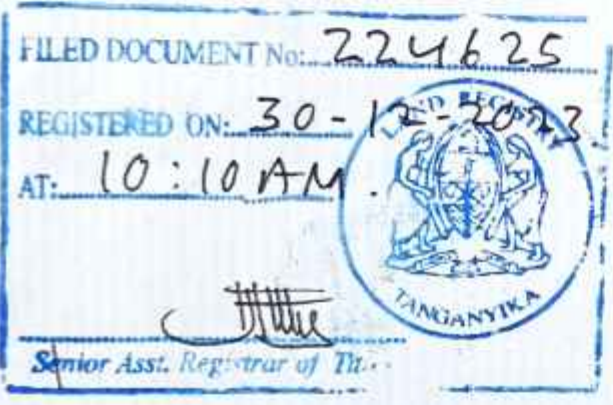 FILED DOCUMENT No: 224625
REGISTERED ON: 30-12-2023
AT: 10:10 AM.
LAND REGISTRY
TANGANYIKA
Senior Asst. Registrar of